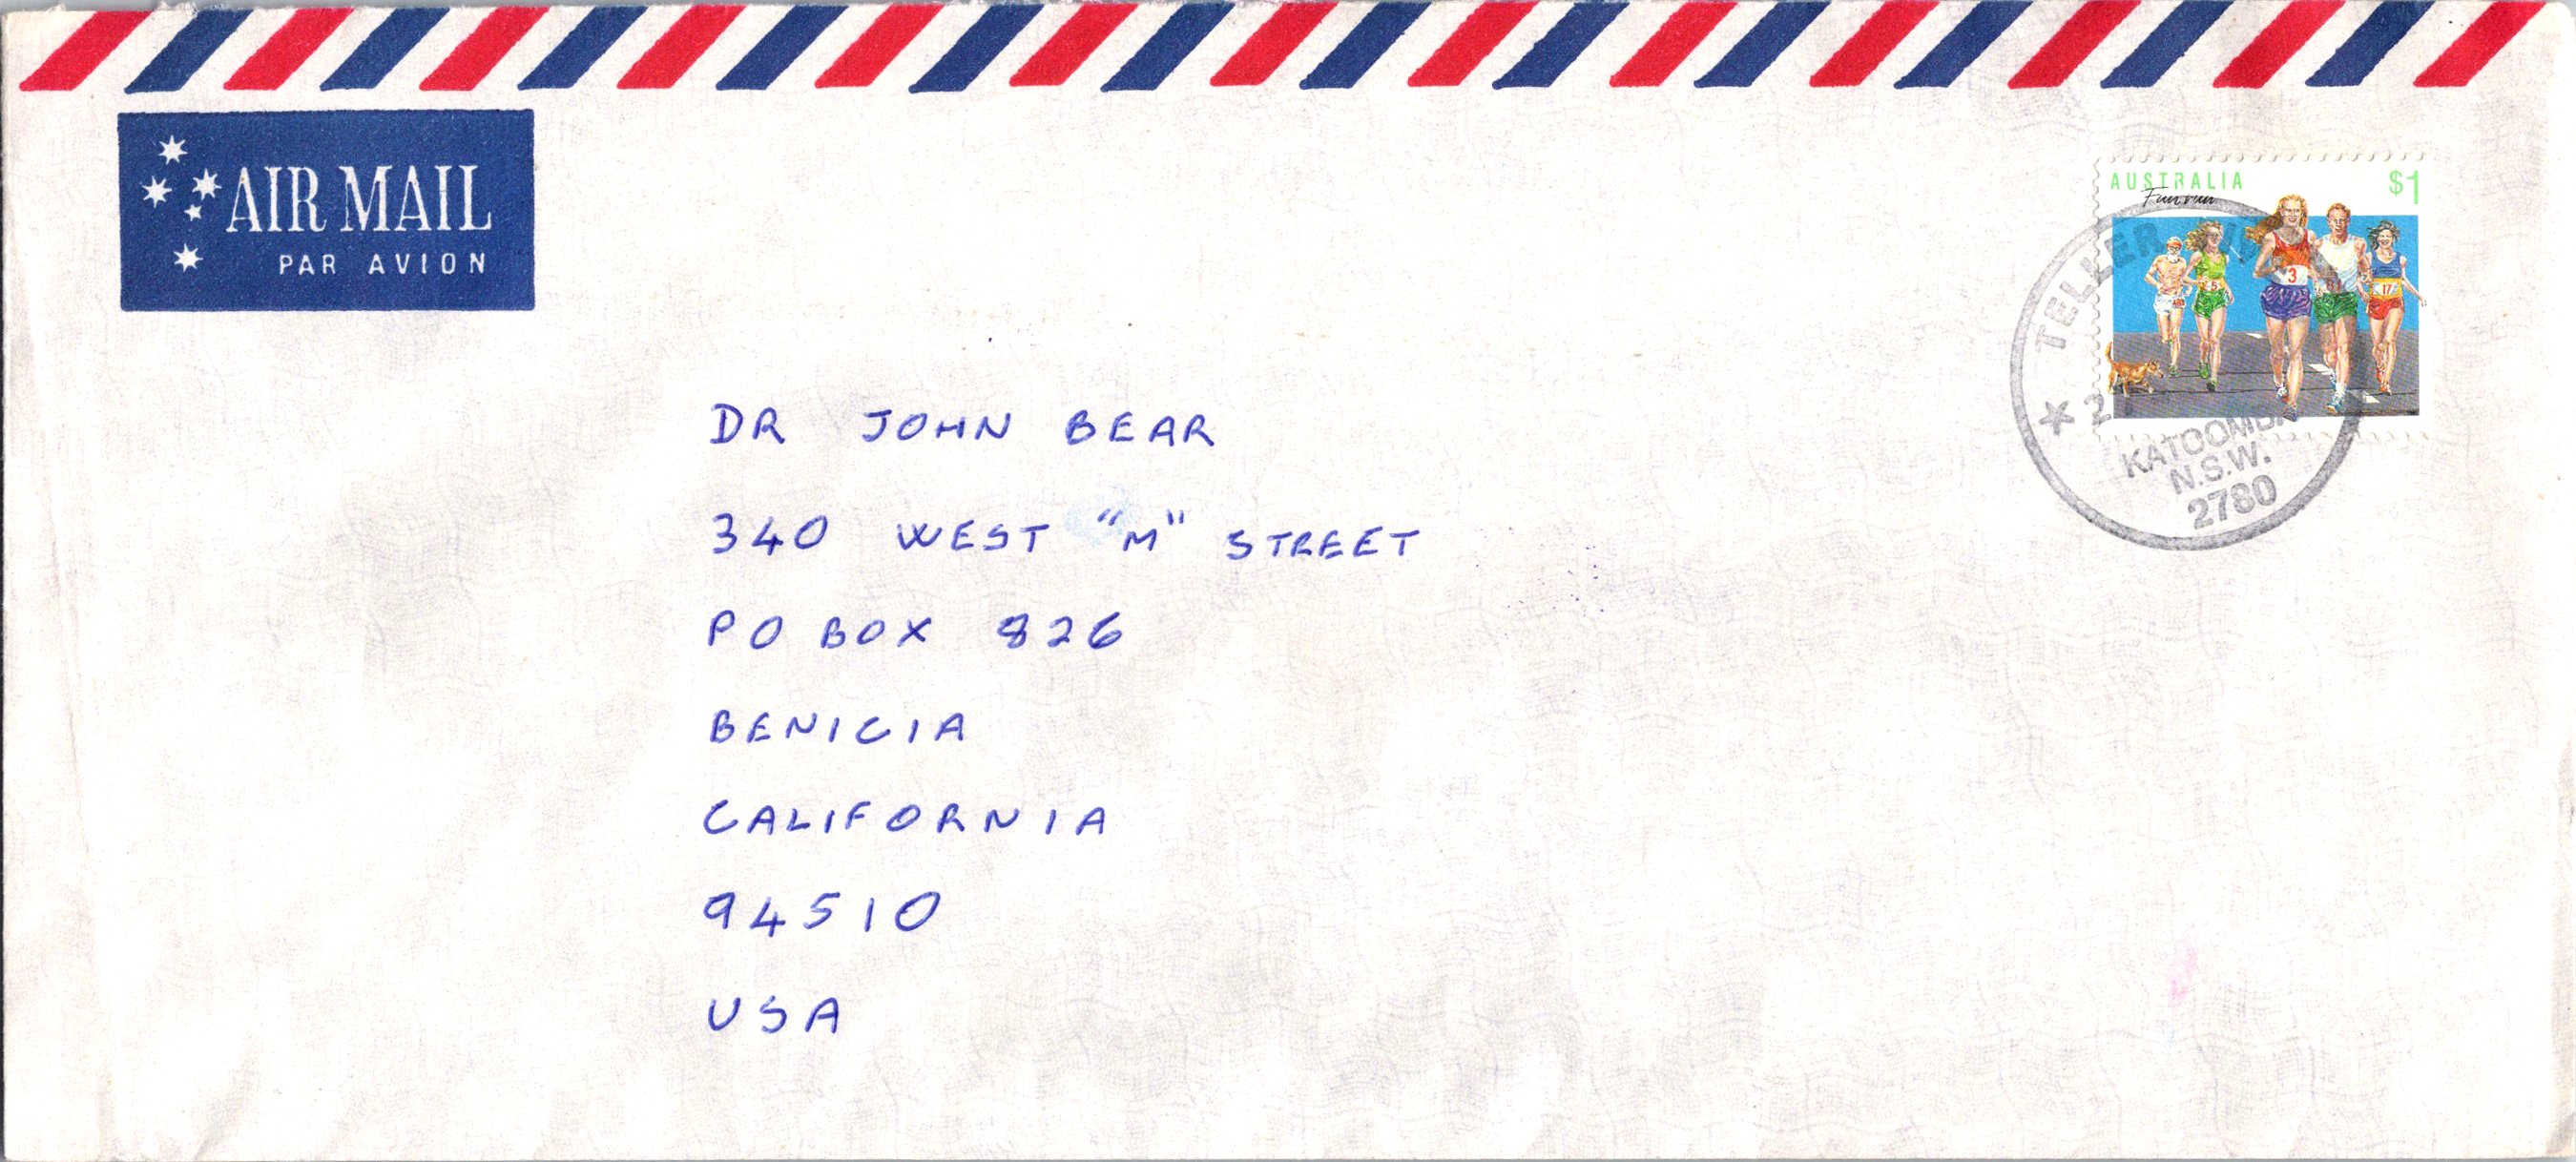 AIR MAIL
PAR AVION
AUSTRALIA $1
Fun run
3
5
17
TELLER
KATOOMBA
N.S.W.
2780
DR JOHN BEAR
340 WEST "M" STREET
PO BOX 826
BENICIA
CALIFORNIA
94510
USA